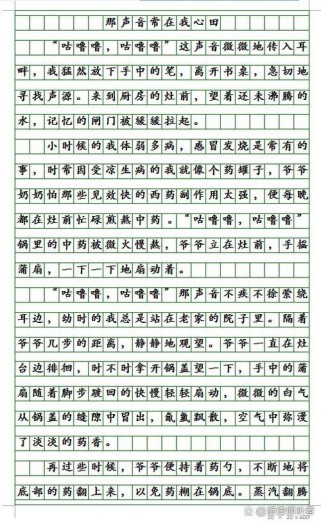 那声音常在我心田
“咕噜噜，咕噜噜”这声音微微地传入耳
畔，我猛然放下手中的笔，离开书桌，急切地
寻找声源。来到厨房的灶前，望着还未沸腾的
水，记忆的闸门被缓缓拉起。
小时候的我体弱多病，感冒发烧是常有的
事，时常因受凉生病的我就像个药罐子，爷爷
奶奶怕那些见效快的西药副作用太强，便每晚
都在灶前忙碌煎熬中药。“咕噜噜，咕噜噜”
锅里的中药被微火慢熬，爷爷立在灶前，手摇
蒲扇，一下一下地扇动着。
“咕噜噜，咕噜噜”那声音不疾不徐萦绕
耳边，幼时的我总是站在老家的院子里。隔着
爷爷几步的距离，静静地观望。爷爷一直在灶
台边徘徊，时不时拿开锅盖望一下，手中的蒲
扇随着脚步踱回的快慢轻轻扇动，微微的白气
从锅盖的缝隙中冒出，氤氲飘散，空气中弥漫
了淡淡的药香。
再过些时候，爷爷便持着药勺，不断地将
底部的药翻上来，以免药糊在锅底。蒸汽翻腾
20×20=400